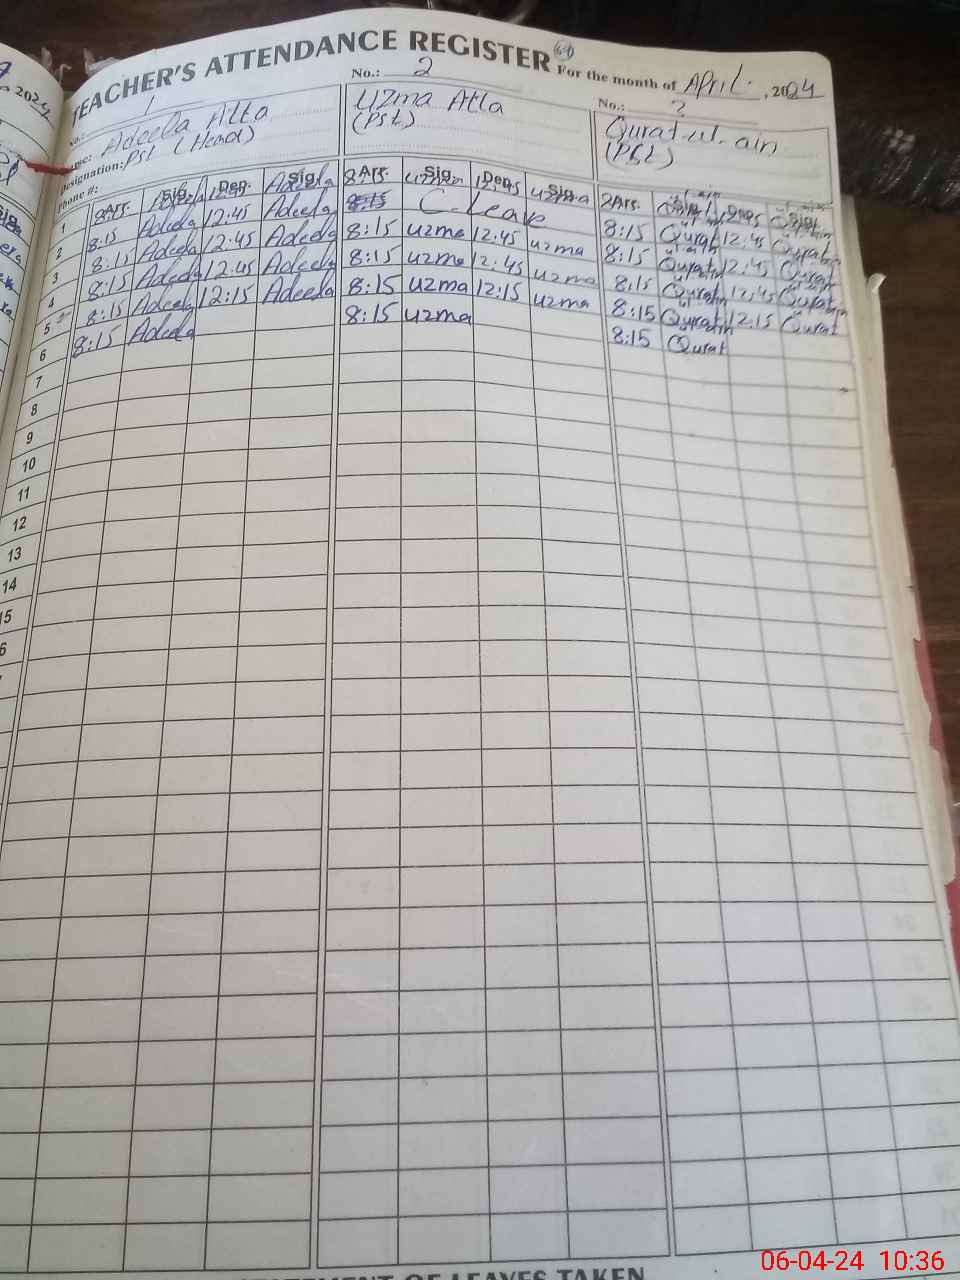 TEACHER'S ATTENDANCE REGISTER
For the month of April, 2024
No.: 1
Name: Adeela Atta
Designation: PST (Head)
Phone #:
No.: 2
Uzma Atta
(PST)
No.: 3
Qurat-ul-ain
(PST)
Arr. Sig. Dep. Sig. Arr. Sig. Dep. Sig. Arr. Sig. Dep. Sig.
1 Adeela Uzma 12:45 Uzma
2 8:15 Adeela 12:45 Adeela C-Leave 8:15 Qurat 12:45 Qurat
3 8:15 Adeela 12:45 Adeela 8:15 uzma 12:45 uzma 8:15 Qurat 12:45 Qurat
4 8:15 Adeela 12:45 Adeela 8:15 uzma 12:45 uzma 8:15 Qurat 12:45 Qurat
5 8:15 Adeela 12:15 Adeela 8:15 uzma 12:15 uzma 8:15 Qurat 12:15 Qurat
6 8:15 Adeela 8:15 uzma 8:15 Qurat
7
8
9
10
11
12
13
14
15
OF LEAVES TAKEN
06-04-24 10:36